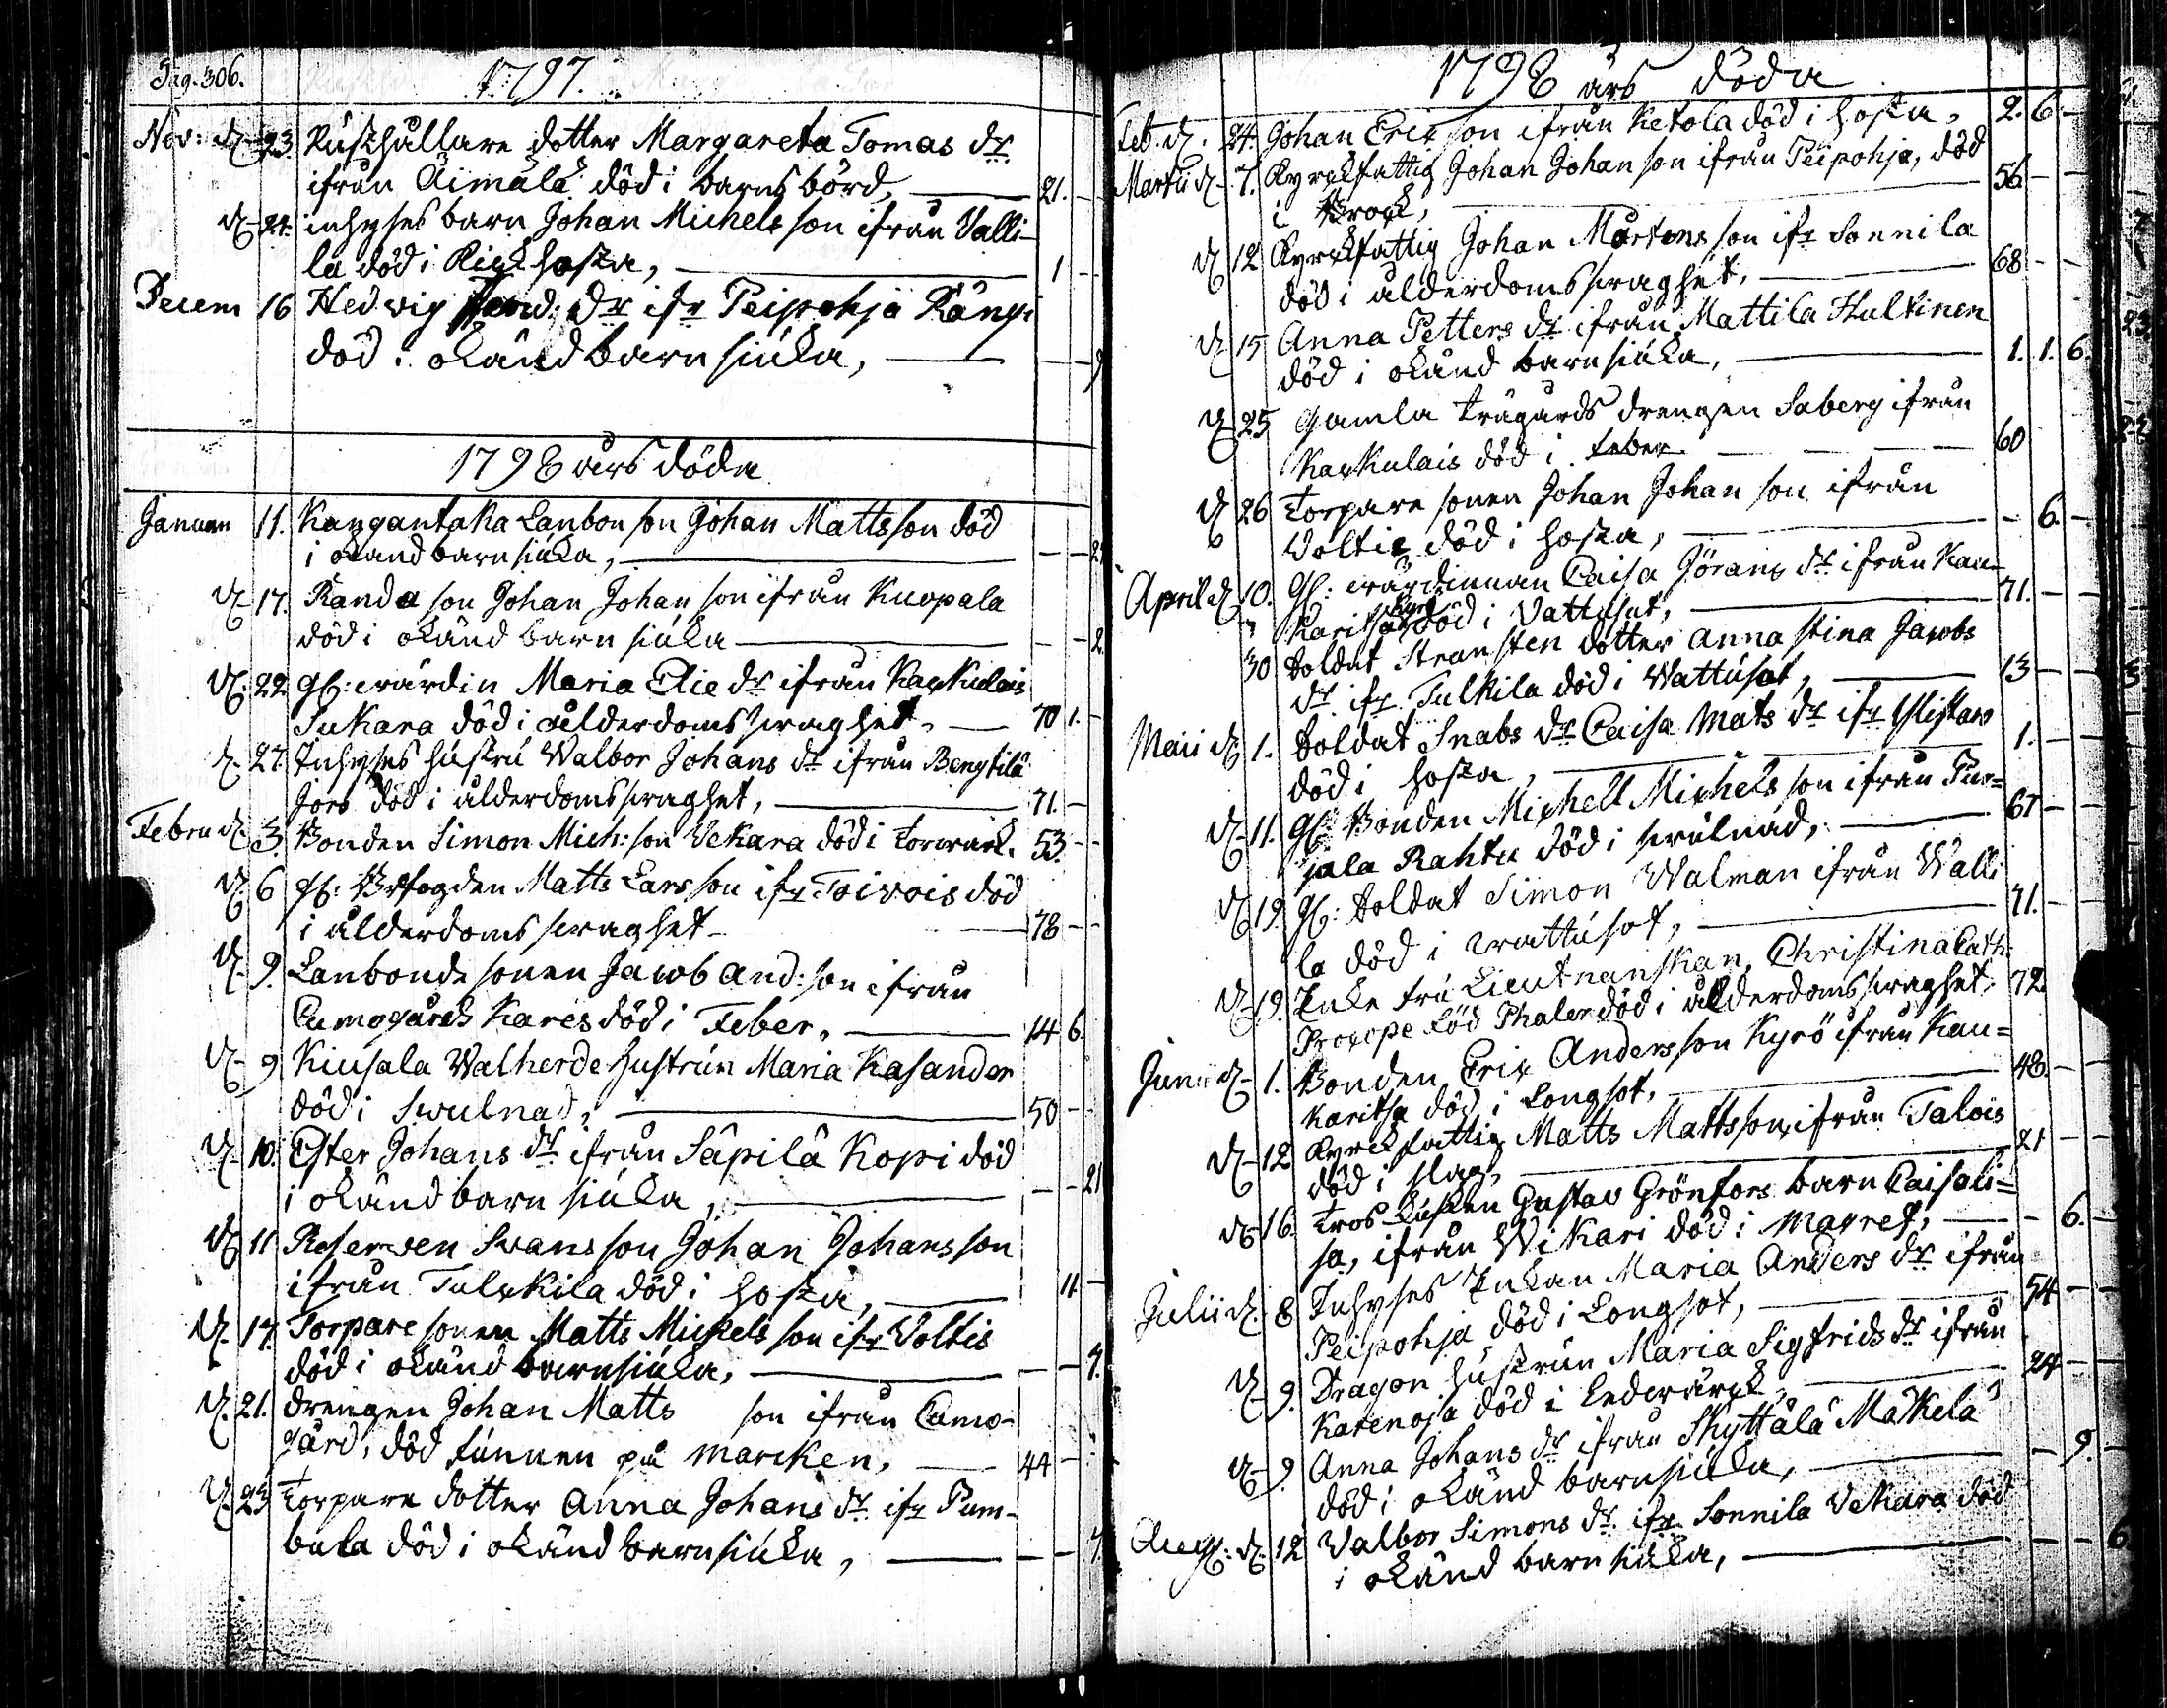 Pag. 306.
1797.
Nov: d. 23. Rusthållare dotter Margareta Tomas dr
ifrån Äimälä död i barnsbörd, 21. -
d. 24. inhyses barn Johan Michelsson ifrån Valli-
la död i Kickhosta, 1 -
Decem 16 Hedvig dr ifr Peipohja
död i okänd barnsiuka, - 9
1798 års döda
Januari 11. Kangantaka Lanbon son Johan Mattsson död
i okänd barnsiuka, - -
d. 17. Randa son Johan Johansson ifrån Kuopala
död i okänd barnsiuka - - 2
d. 22 gl: wärdin Maria Elie dr ifrån Karkulais
Sukara död i ålderdomswaghet, 70 1. -
d. 27. Inhyses hustru Walbor Johans dr ifrån Bengtilä
Jors död i ålderdomswaghet, 71. -
Febru d. 3. Bonden Simon Mich: son Vekara död i 53. -
d. 6 gl: Matts Larsson ifr Toivois död
i ålderdomswaghet - 78 -
d. 9. Lanbonde sonen Jacob And: son ifrån
Cumogårds Karës död i Feber, 14 6.
d. 9 Kiusala Walherde hustrun Maria Kasander
död i Swulnad, 50 - -
d. 10. Ester Johans dr ifrån Säpilä Kopi död
i okänd barnsiuka, - - 21
d. 11 Reserven Svans son Johan Johansson
ifrån Tulckila död i hosta, 11 -
d. 17. Torpare sonen Matts Mickelsson ifr Voltis
död i okänd barnsiuka, - - 7.
d. 21. drengen Johan Matts son ifrån Cumo-
gård, död funnen på marcken, 44 -
d. 23 Torpare dotter Anna Johans dr ifr Pum-
bula död i okänd barnsiuka, - - 7.
1798 års döda
Feb. d. 24. Johan Ericsson ifrån Ketola död i hosta, 2. 6 -
Martii d. 7. Kyrckfattig Johan Johansson ifrån Peipohja, död
i Brock, 56 - -
d. 12 Kyrckfattig Johan Mårtensson ifr Sonnila
död i ålderdomswaghet, 68 - -
d. 15 Anna Petters dr ifrån Mattila Hultinen
död i okänd barnsiuka, 1. 1. 6.
d. 25 Gamla trägårds drengen Saberg ifrån
Karkulais död i feber 60
d. 26 Torpare sonen Johan Johansson ifrån
Voltis död i hosta, - 6. -
April d. 10. gl: wärdinnan Caisa Jörans dr ifrån Kau-
karitsa Kyrö död i Vattusot, 71. -
" 30 Soldat Stransten dotter Anna Stina Jacobs
dr ifr Tulkila död i Wattusot, 13 -
Maii d. 1. Soldat Snabs dr Caisa Mats dr ifr Ylistaro
död i hosta, 1. -
d. 11. gl: Bonden Michell Michelsson ifrån Pur-
jala Rahtu död i swulnad, 67 -
d. 19. gl: Soldat Simon Walman ifrån Walli
la död i wattusot, 71. -
d. 19. Enke fru Lieutnanskan Christina Cath:
Procope född Thaler död i ålderdomswaghet, 72.
Junii d. 1. Bonden Eric Andersson Kyrö ifrån Kau=
karitsa död i Longsot, 48. -
d. 12 Kyrckfattig Matts Mattsson ifrån Talois
död i slag, 21 -
d. 16. Tros kusken Gustav Grönfors barn Caisali=
sa, ifrån Wikari död i magref, - 6. -
Julii d. 8 Inhyses Enkan Maria Anders dr ifrån
Peipohja död i Longsot, 54 -
d. 9. Dragon hustrun Maria Sigfrids dr ifrån
Karenoja död i Ledwärck, 24 -
d. 9. Anna Johans dr ifrån Skyttälä Mäkelä
död i okänd barnsiuka, - 9. -
Aug: d. 12 Valbor Simons dr ifr Sonnila Vekara död
i okänd barnsiuka, - - 6